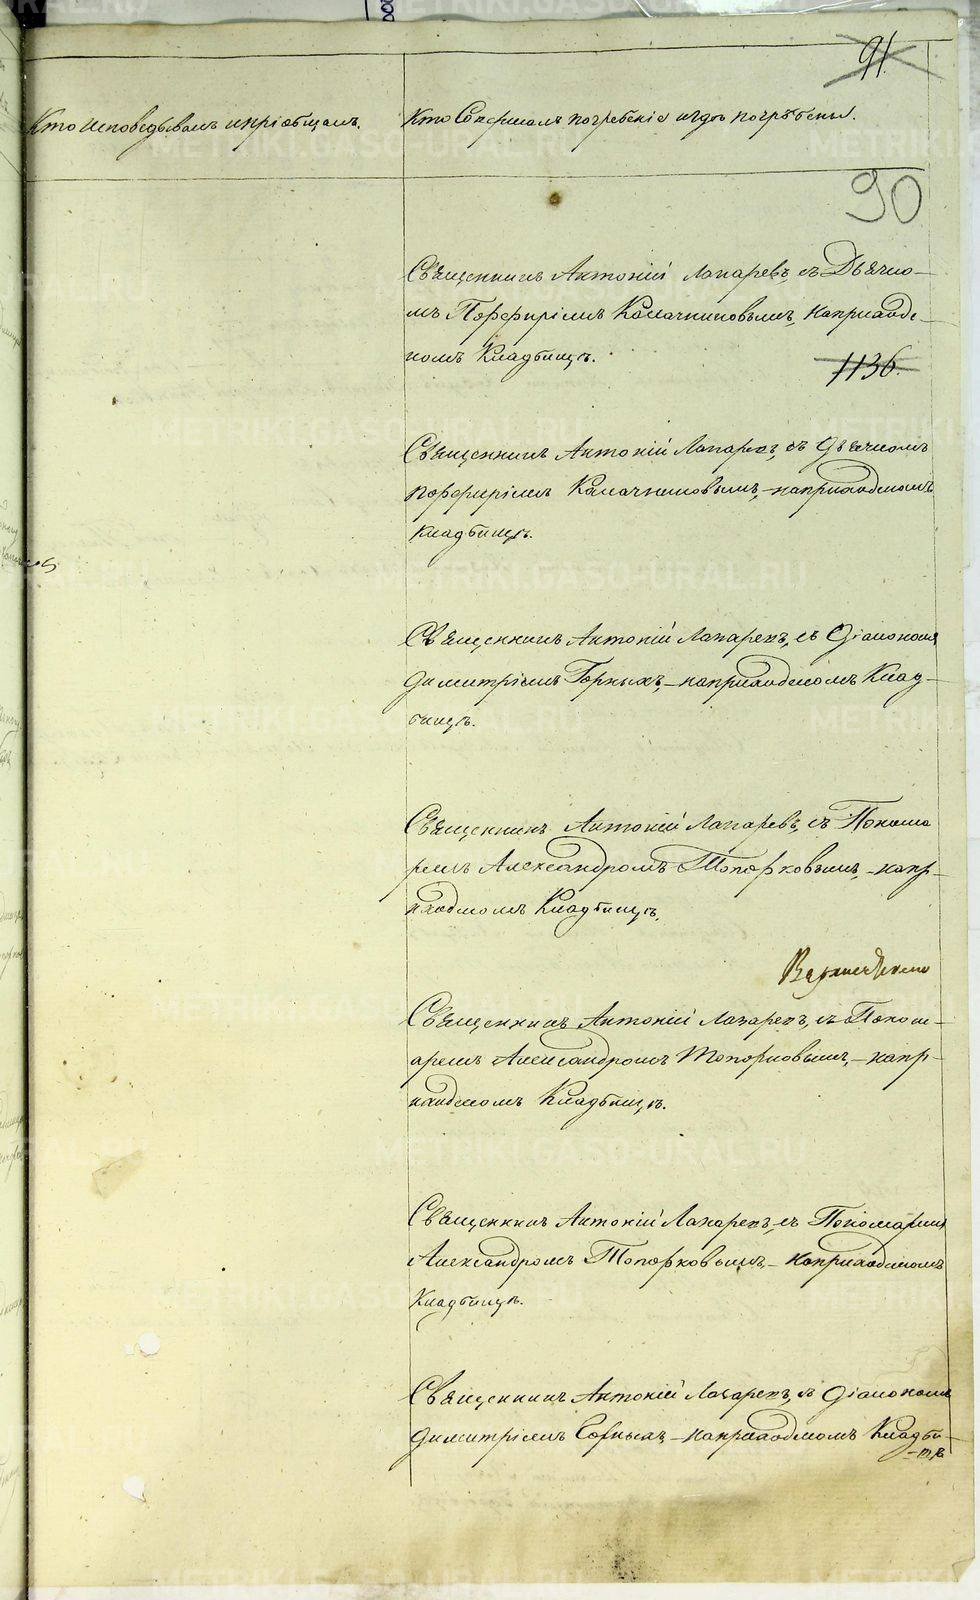 91
Кто исповедывалъ и пріобщалъ.
Кто Совершалъ погребеніе и гдѣ погрѣбены.
90
Священникъ Антоній Лапаревъ, съ Дьячко-
мъ Порфиріемъ Калачниковымъ, на приходс-
комъ Кладбищѣ.
1136.
Священникъ Антоній Лапаревъ, съ Дьячкомъ
Порфиріемъ Калачниковымъ, на приходскомъ
Кладбищѣ.
Священникъ Антоній Лапаревъ, съ Діакономъ
Димитріемъ Горныхъ, на приходскомъ Клад-
бищѣ.
Священникъ Антоній Лапаревъ, съ Понома
ремъ Александромъ Топорковымъ, на пр-
иходскомъ Кладбищѣ.
Священникъ Антоній Лапаревъ, съ Поном-
аремъ Александромъ Топорковымъ, на пр-
иходскомъ Кладбищѣ.
Священникъ Антоній Лапаревъ, съ Пономаремъ
Александромъ Топорковымъ, на приходскомъ
Кладбищѣ.
Священникъ Антоній Лапаревъ, съ Діакономъ
Димитріемъ Горныхъ, на приходскомъ Кладби-
щѣ
METRIKI.GASO-URAL.RU